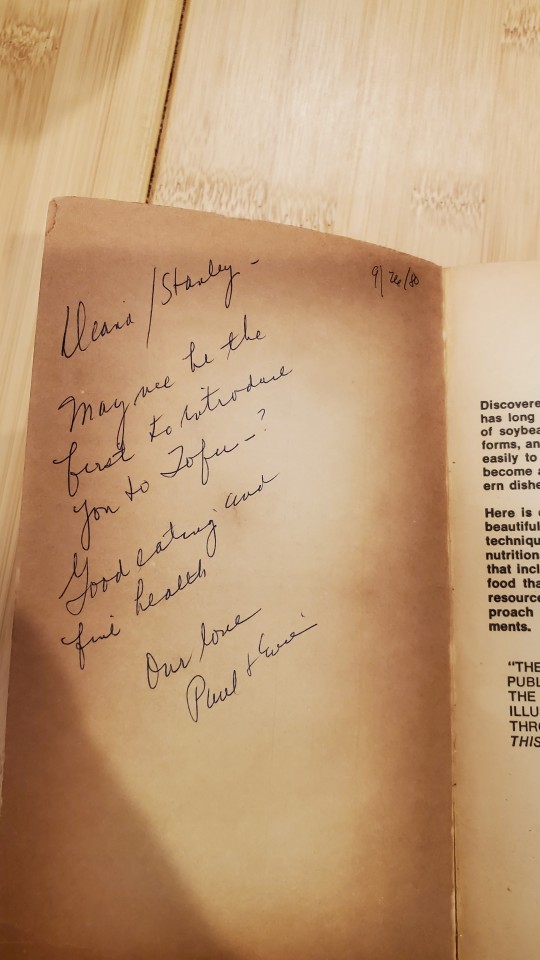 9/26/80
Deana / Stanley -
May we be the
first to introduce
you to Tofu - ?
Good eating and
fine health
Our love
Paul &
Discovere
has long
of soybea
forms, an
easily to
become a
ern dishe
Here is
beautiful
techniqu
nutrition
that incl
food tha
resource
proach
ments.
"THE
PUBL
THE
ILLU
THRO
THIS